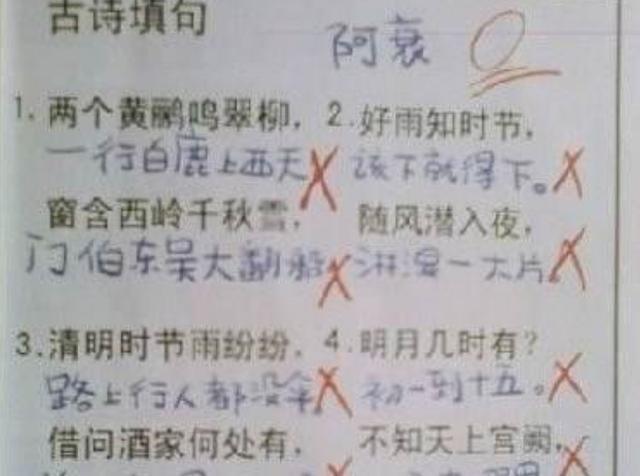 古诗填句
阿衰 0
1. 两个黄鹂鸣翠柳，
一行白鹿上西天
窗含西岭千秋雪，
门伯东吴大翻船
2. 好雨知时节，
该下就得下。
随风潜入夜，
淋湿一大片
3. 清明时节雨纷纷，
路上行人都没伞
借问酒家何处有，
4. 明月几时有？
初一到十五。
不知天上宫阙，